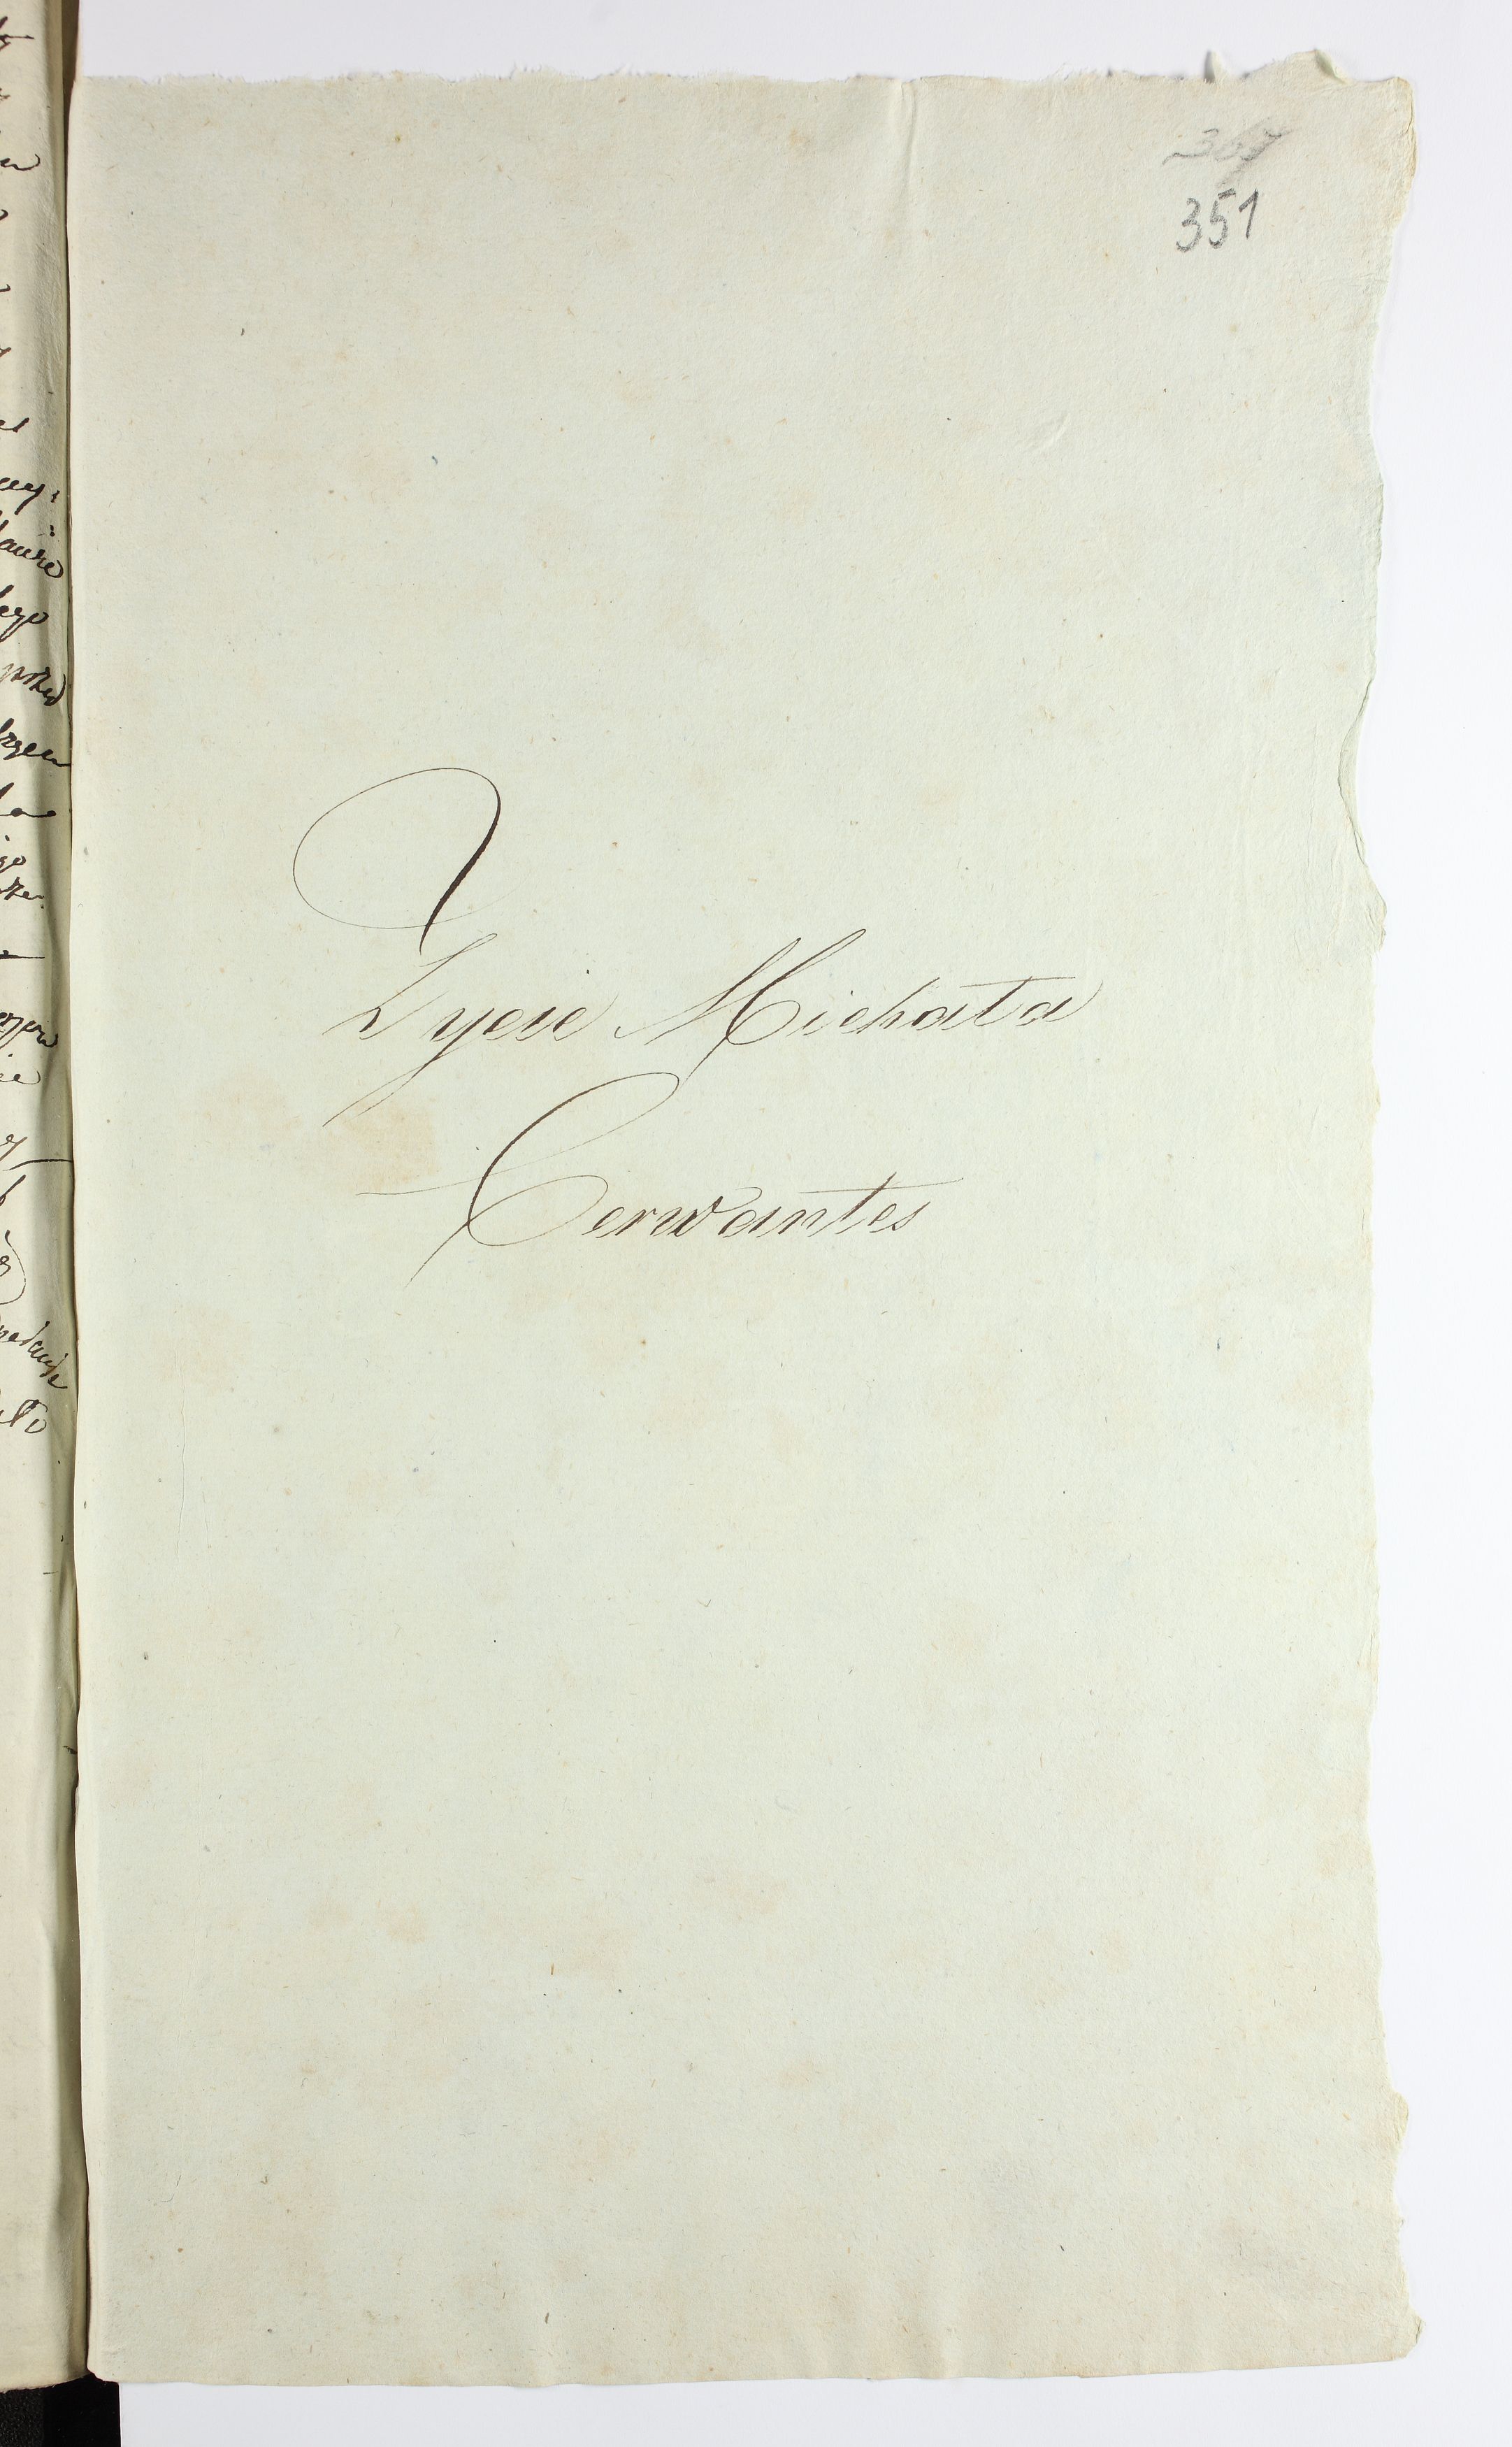 367
351
Życie Michała
Cerwantes